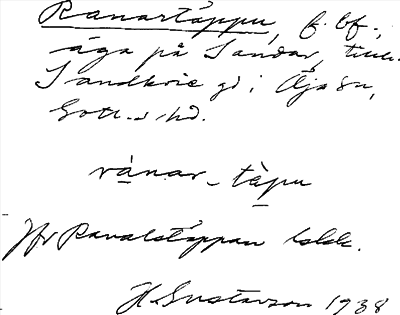 Ranartäppu, f. bf.,
äga på Sandar, till.
Sandkvie gd i Öja sn,
Gotl. s hd.
rànar-tèpu
Jfr Ranalstäppan
H Gustavson 1938